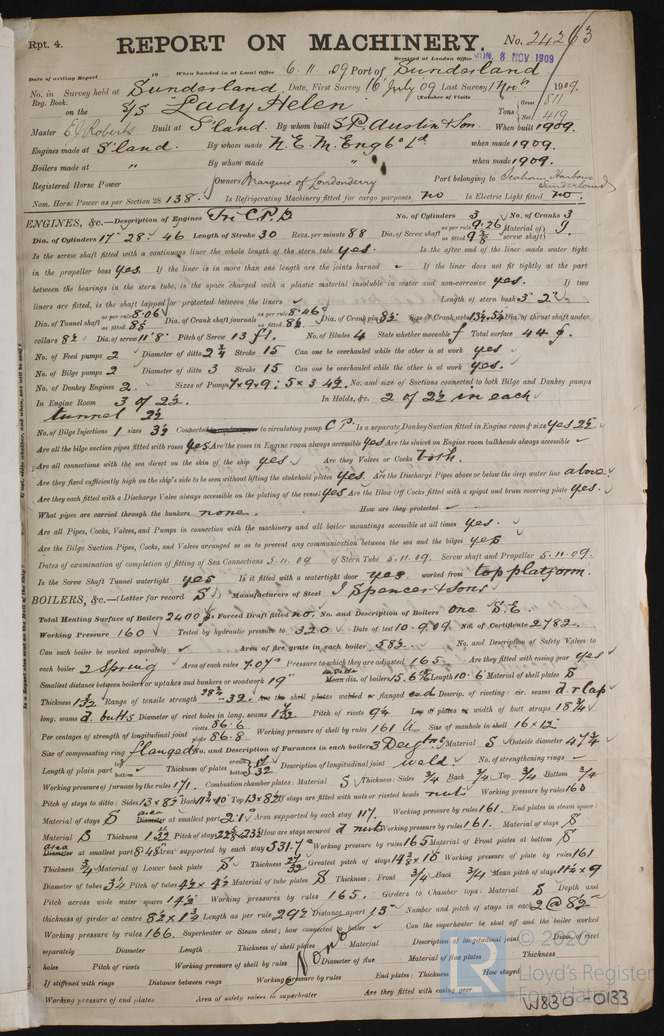 Rpt. 4. REPORT ON MACHINERY. No. 24263
Received at London Office MON. 8 NOV 1909
Date of writing Report 19 When handed in at Local Office 6.11.09 Port of Sunderland
No. in Survey held at Sunderland Date, First Survey 16 July 09 Last Survey 1909.
Reg. Book. (Number of Visits
on the S/S "Lady Helen" Tons Gross 811 Net 419
Master E. J. Roberts Built at S'land. By whom built S. P. Austin & Son. When built 1909.
Engines made at S'land. By whom made N. E. M. Eng Co Ld when made 1909.
Boilers made at " By whom made " when made 1909.
Registered Horse Power Owners Marquis of Londonderry Port belonging to Seaham Harbour Sunderland
Nom. Horse Power as per Section 28 138 Is Refrigerating Machinery fitted for cargo purposes no Is Electric Light fitted no.
ENGINES, &c.—Description of Engines Tri C.P. No. of Cylinders 3 No. of Cranks 3
Dia. of Cylinders 17" 28" 46 Length of Stroke 30 Revs. per minute 88 Dia. of Screw shaft as per rule 9.26 as fitted 9 5/8 Material of screw shaft
Is the screw shaft fitted with a continuous liner the whole length of the stern tube yes. Is the after end of the liner made water tight
in the propeller boss yes. If the liner is in more than one length are the joints burned If the liner does not fit tightly at the part
between the bearings in the stern tube, is the space charged with a plastic material insoluble in water and non-corrosive yes. If two
liners are fitted, is the shaft lapped or protected between the liners Length of stern bush 3' 2"
Dia. of Tunnel shaft as per rule 8.06 as fitted 8 5/8 Dia. of Crank shaft journals as per rule 8.46 as fitted 8 1/2 Dia. of Crank pin 8 1/2 Size of Crank webs Dia. of thrust shaft under
collars 8 1/2 Dia. of screw 11' 8" Pitch of Screw 13 ft. No. of Blades 4 State whether moveable f Total surface 44
No. of Feed pumps 2 Diameter of ditto 2 3/4 Stroke 15 Can one be overhauled while the other is at work yes
No. of Bilge pumps 2 Diameter of ditto 3 Stroke 15 Can one be overhauled while the other is at work yes.
No. of Donkey Engines 2. Sizes of Pumps 7x9x9; 5x3 1/2 No. and size of Suctions connected to both Bilge and Donkey pumps
In Engine Room 3 of 2 1/2. In Holds, &c. 2 of 2 1/2 in each
tunnel 2 1/2
No. of Bilge Injections 1 sizes 3 1/2 Connected to circulating pump C.P. Is a separate Donkey Suction fitted in Engine room & size yes 2 1/2
Are all the bilge suction pipes fitted with roses yes Are the roses in Engine room always accessible yes Are the sluices on Engine room bulkheads always accessible
Are all connections with the sea direct on the skin of the ship yes. Are they Valves or Cocks both.
Are they fixed sufficiently high on the ship's side to be seen without lifting the stokehold plates yes. Are the Discharge Pipes above or below the deep water line above.
Are they each fitted with a Discharge Valve always accessible on the plating of the vessel yes Are the Blow Off Cocks fitted with a spigot and brass covering plate yes.
What pipes are carried through the bunkers none. How are they protected
Are all Pipes, Cocks, Valves, and Pumps in connection with the machinery and all boiler mountings accessible at all times yes.
Are the Bilge Suction Pipes, Cocks, and Valves arranged so as to prevent any communication between the sea and the bilges yes
Dates of examination of completion of fitting of Sea Connections 5.11.09. of Stern Tube 5.11.09. Screw shaft and Propeller 5.11.09.
Is the Screw Shaft Tunnel watertight yes Is it fitted with a watertight door yes. worked from top platform.
BOILERS, &c.—(Letter for record S) Manufacturers of Steel J Spencer & Sons
Total Heating Surface of Boilers 2400 Is Forced Draft fitted no. No. and Description of Boilers one S.E.
Working Pressure 160 Tested by hydraulic pressure to 320 Date of test 10.9.09 No. of Certificate 2782.
Can each boiler be worked separately Area of fire grate in each boiler 58 1/2 No. and Description of Safety Valves to
each boiler 2 Spring Area of each valve 7.07 Pressure to which they are adjusted 165. Are they fitted with easing gear yes
Smallest distance between boilers or uptakes and bunkers or woodwork 19" Mean dia. of boilers 15.6 Length 10.6 Material of shell plates S
Thickness 1 3/32 Range of tensile strength 28 1/2-32 Are the shell plates welded or flanged end Descrip. of riveting: cir. seams d.r lap
long. seams d. butts Diameter of rivet holes in long. seams Pitch of rivets 9 1/4 Lap of plates or width of butt straps 18 3/4
Per centages of strength of longitudinal joint rivets 86.6 plate 86.8 Working pressure of shell by rules 161 Size of manhole in shell 16 x 12
Size of compensating ring flanged No. and Description of Furnaces in each boiler 3 Deightns Material S Outside diameter 47 3/4
Length of plain part top bottom Thickness of plates crown bottom 17/32 Description of longitudinal joint weld No. of strengthening rings
Working pressure of furnace by the rules 171. Combustion chamber plates: Material S Thickness: Sides 3/4 Back 3/4 Top 3/4 Bottom 3/4
Pitch of stays to ditto: Sides 13x8 1/2 Back Top 13x8 1/2 If stays are fitted with nuts or riveted heads nuts Working pressure by rules 163
Material of stays S Area at smallest part 2.1 Area supported by each stay 117. Working pressure by rules 161. End plates in steam space:
Material S Thickness 1 Pitch of stays How are stays secured d nuts Working pressure by rules 161. Material of stays S
Area at smallest part 8.45 Area supported by each stay 531.7 Working pressure by rules 165 Material of Front plates at bottom S
Thickness 3/4 Material of Lower back plate S Thickness 27/32 Greatest pitch of stays Working pressure of plate by rules 161
Diameter of tubes 3 1/4 Pitch of tubes 4 1/2 x 4 1/2 Material of tube plates S Thickness: Front 3/4 Back 3/4 Mean pitch of stays 11 1/4 x 9
Pitch across wide water spaces 14 1/2 Working pressures by rules 165. Girders to Chamber tops: Material S Depth and
thickness of girder at centre 8 1/2 x 1 3/4 Length as per rule 29 1/2 Distance apart 13" Number and pitch of stays in each 2 @ 8 1/2"
Working pressure by rules 166. Superheater or Steam chest; how connected to boiler Can the superheater be shut off and the boiler worked
separately Diameter Length Thickness of shell plates Material Description of longitudinal joint Diam. of rivet
None
holes Pitch of rivets Working pressure of shell by rules Diameter of flue Material of flue plates Thickness
If stiffened with rings Distance between rings Working pressure by rules End plates: Thickness How stayed
Working pressure of end plates Area of safety valves to superheater Are they fitted with easing gear
© 2020
LR
Lloyd's Register
Foundation
W830-0133